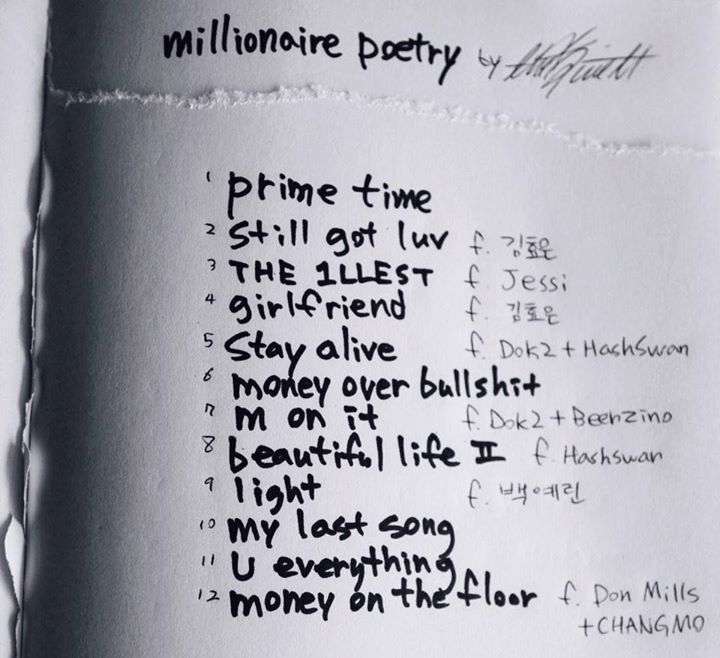 millionaire poetry by
1 prime time
2 still got luv f. 김효은
3 THE 1LLEST f. Jessi
4 girlfriend f. 김효은
5 Stay alive f. Dok2 + HashSwan
6 money over bullshit
7 m on it f. Dok2 + Beenzino
8 beautiful life II f. Hashswan
9 light f. 백예린
10 my last song
11 U everything
12 money on the floor f. Don Mills
+CHANGMO